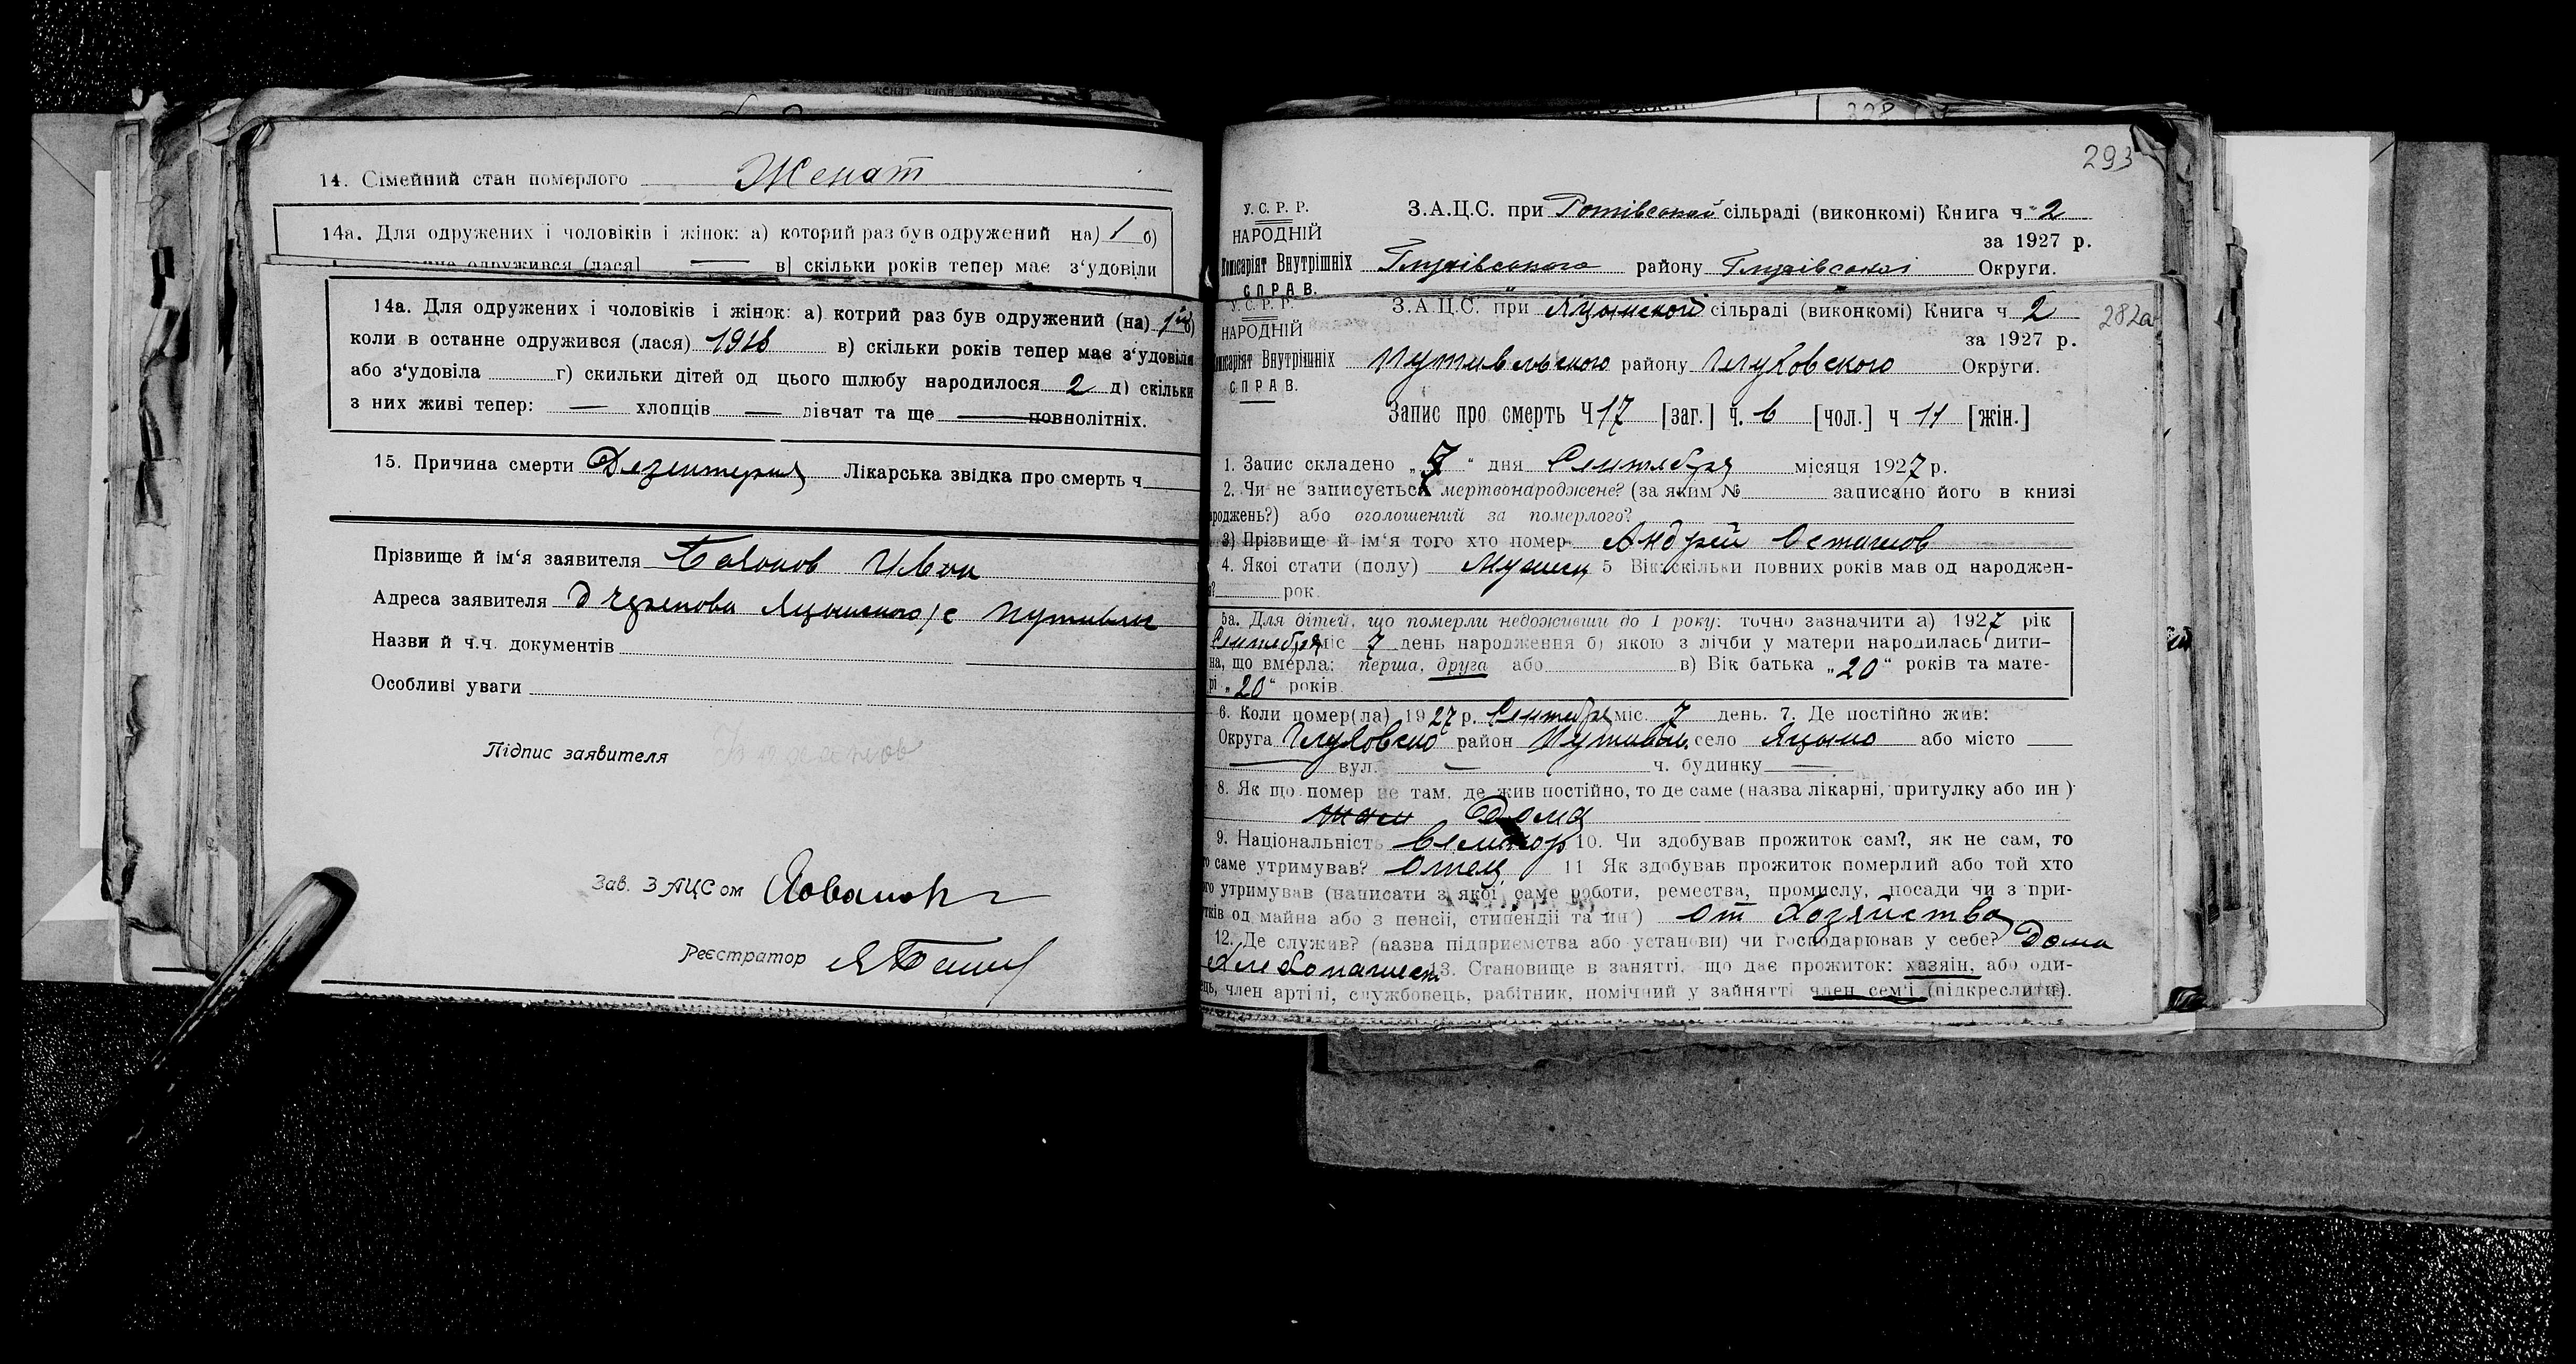 14. Сімейний стан померлого Женат
14а. Для одружених і чоловіків і жінок: а) которий раз був одружений на) 1 б)
одружився (лася) — в) скільки років тепер має з‘удовіли
14а. Для одружених і чоловіків і жінок: а) котрий раз був одружений (на) 1й б)
коли в останне одружився (лася) 1918 в) скільки років тепер має з‘удовіла
або з‘удовіла г) скильки дітей од цього шлюбу народилося 2 д) скільки
з них живі тепер: — хлопців — дівчат та ще — повнолітніх.
15. Причина смерти Дезентерия Лікарська звідка про смерть ч
Прізвище й ім‘я заявителя Иван
Адреса заявителя д Яцынского с/с Путивль
Назви й ч.ч. документів
Особливі уваги
Підпис заявителя
Зав. ЗАЦСом
Реєстратор
293
У.С.Р.Р. З.А.Ц.С. при сільраді (виконкомі) Книга ч 2
НАРОДНІЙ за 1927 р.
Комісаріят Внутрішніх Глухівського району Глухівської Округи.
СПРАВ.
У.С.Р.Р. З.А.Ц.С. при Яцынской сільраді (виконкомі) Книга ч 2 282а
НАРОДНІЙ за 1927 р.
Комісаріят Внутрішніх Путивльского району Глуховского Округи.
СПРАВ.
Запис про смерть Ч 17 [заг.] ч. 6 [чол.] ч 11 [жін.]
1. Запис складено „7“ дня Сентября місяця 1927 р.
2. Чи не записується мертвонароджене? (за яким № записано його в книзі
роджень?) або оголошений за померлого?
3) Прізвище й ім‘я того хто помер Андрей Осташов
4. Якої стати (полу) Мужск 5 Вік: скільки повних років мав од народжен-
рок.
5а. Для дітей, що померли недоживши до 1 року: точно зазначити а) 1927 рік
Сентября міс 7 день народження б) якою з лічби у матери народилась дити-
на, що вмерла: перша, друга або в) Вік батька „20“ років та мате-
рі „20“ років.
6. Коли помер(ла) 1927 р. Сентября міс. 7 день. 7. Де постійно жив:
Округа Глуховско район Путивль село Яцыно або місто —
— вул. — ч. будинку —
8. Як що помер не там, де жив постійно, то де саме (назва лікарні, притулку або ин)
Дома
9. Національність великор 10. Чи здобував прожиток сам?, як не сам, то
саме утримував? отец 11 Як здобував прожиток померлий або той хто
утримував (написати з якої саме роботи, ремества, промислу, посади чи з при-
тків од майна або з пенсії, стипендії та ин) от хозяйства
12. Де служив? (назва підприємства або установи) чи господарював у себе? Дома
Хлебопашест 13. Становище в занятті, що дає прожиток: хазяін, або оди-
ець, член артілі, службовець, рабітник, помічний у зайнятті член сем‘ї (підкреслити).